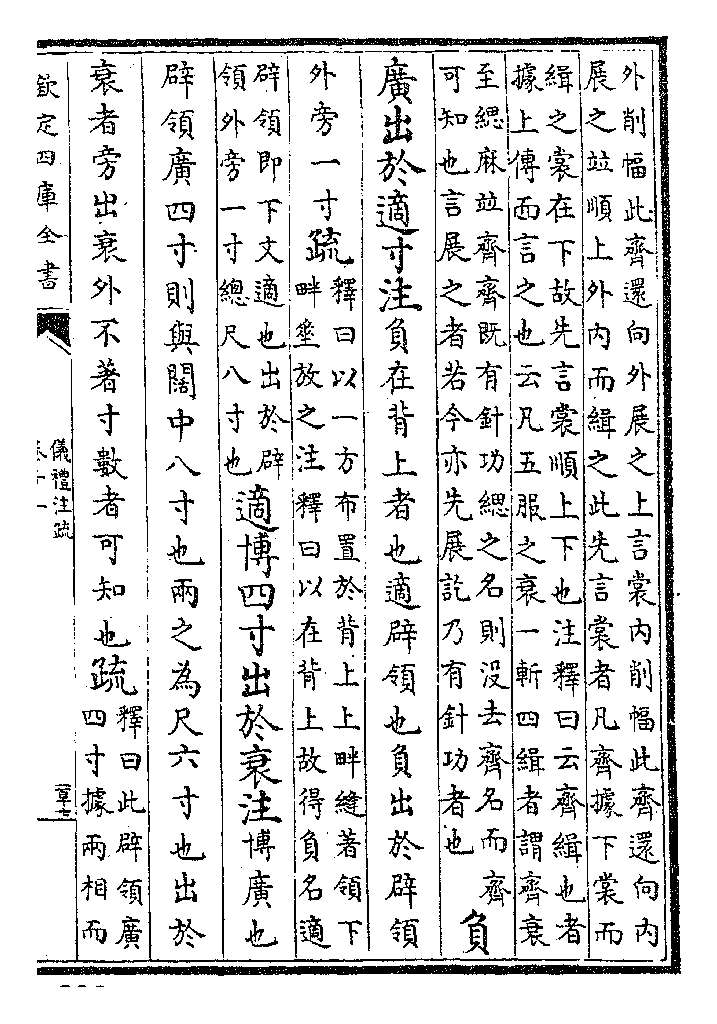 外削幅此齊還向外展之上言裳内削幅此齊還向内
展之竝順上外内而緝之此先言裳者凡齊據下裳而
緝之裳在下故先言裳順上下也注釋曰云齊緝也者
據上傳而言之也云凡五服之衰一斬四緝者謂齊衰
至緦麻竝齊齊既有針功緦之名則没去齊名而齊
可知也言展之者若今亦先展訖乃有針功者也
負
廣出於適寸注負在背上者也適辟領也負出於辟領
外旁一寸疏
釋曰以一方布置於背上上畔縫著領下
畔垂放之注釋曰以在背上故得負名適
辟領即下文適也出於辟
領外旁一寸總尺八寸也
適博四寸出於衰注博廣也
辟領廣四寸則與闊中八寸也兩之為尺六寸也出於
衰者旁出衰外不著寸數者可知也疏
釋曰此辟領廣
四寸據兩相而
欽定四庫全書
儀禮注疏